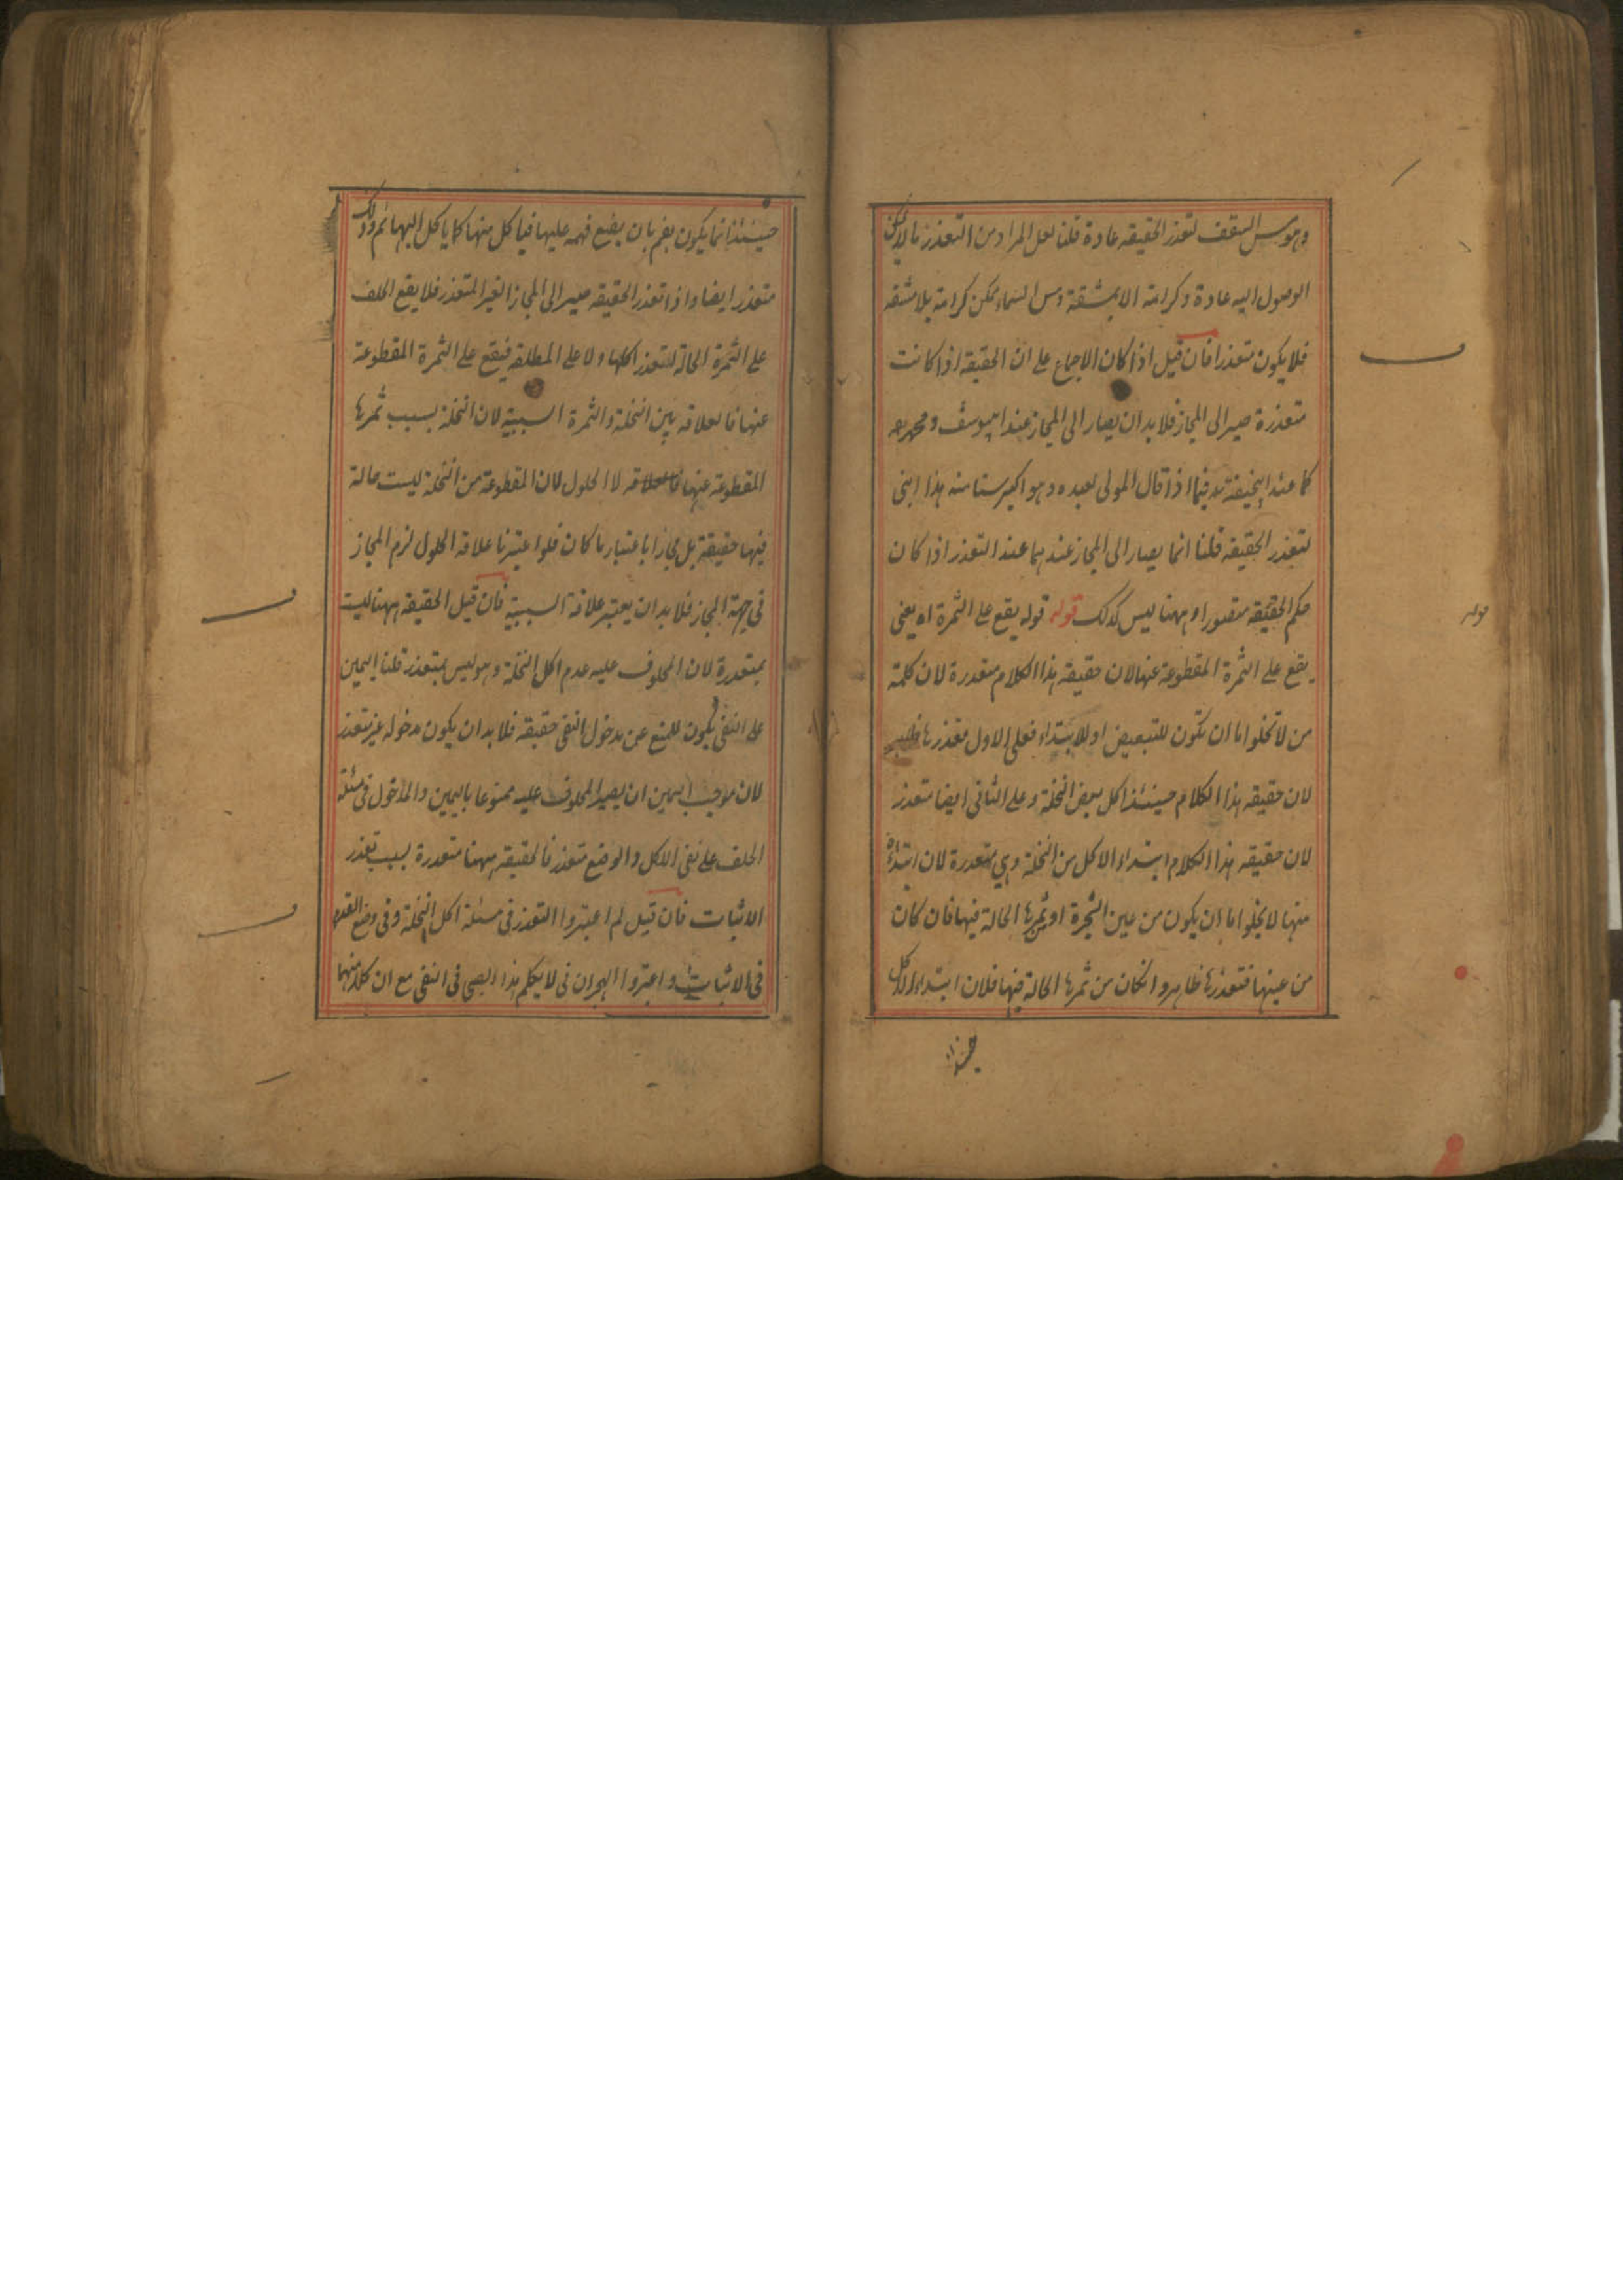 وهو مس السقف لتعذر الحقيقة عادة قلنا لعل المراد من التعذر ما لا يمكن
الوصول اليه عادة وكرامة الا بمشقة ومس السماء ممكن كرامة بلا مشقة
فلا يكون متعذرا فان قيل اذا كان الاجماع على ان الحقيقة اذا كانت
متعذرة صير الى المجاز فلا بد ان يصار الى المجاز عند ابيوسف ومحمد رح
كما عند ابيحنيفة رح فيما اذا قال المولى لعبده وهو اكبر سنا منه هذا ابنى
لتعذر الحقيقة قلنا انما يصار الى المجاز عندهما عند التعذر اذا كان
حكم الحقيقة متصورا وههنا ليس كذلك قوله قوله يقع على الثمرة اه يعنى
يقع على الثمرة المقطوعة عنها لان حقيقة هذا الكلام متعذرة لان كلمة
من لا تخلوا اما ان تكون للتبعيض او للابتداء فعلى الاول متعذرها
لان حقيقة هذا الكلام حينئذ اكل بعض النخلة وعلى الثانى ايضا متعذر
لان حقيقة هذا الكلام ابتداء الاكل من النخلة وهى متعذرة لان ابتداءه
منها لا يخلوا اما ان يكون من عين الشجرة او ثمرها الحالة فيها فان كان
من عينها فتعذرها ظاهر وانكان من ثمرها الحالة فيها فلان ابتداء الاكل
حينئذ
قوله
حينئذ انما يكون بفم بان يضع فمه عليها فيأكل منها كما يأكل البهائم وذلك
متعذر ايضا واذا تعذر الحقيقة صير الى المجاز الغير المتعذر فلا يقع الحلف
على الثمرة الحالة لتعذر اكلها ولا على المطلقة فيقع على الثمرة المقطوعة
عنها فالعلاقة بين النخلة والثمرة السببية لان النخلة بسبب ثمرها
المقطوعة عنها فالعلاقة لا الحلول لان المقطوعة من النخلة ليست حالة
فيها حقيقة بل مجازا باعتبار ما كان فلو اعتبرنا علاقة الحلول لزم المجاز
فى جهة المجاز فلا بد ان يعتبر علاقة السببية فان قيل الحقيقة ههنا ليست
بمتعذرة لان المحلوف عليه عدم اكل النخلة وهو ليس بمتعذر قلنا اليمين
على النفى يكون للمنع عن مدخول النفى حقيقة فلا بد ان يكون مدخوله غير متعذر
لان موجب اليمين ان يصير المحلوف عليه ممنوعا باليمين والمدخول فى مسئلة
الحلف على نفى الاكل والوضع متعذر فالحقيقة ههنا متعذرة بسبب تعذر
الاثبات فان قيل لم اعتبروا التعذر فى مسئلة اكل النخلة وفى وضع القدم
فى الاثبات واعتبروا الهجران فى لا يكلم هذا الصبى فى النفى مع ان كلا منهما